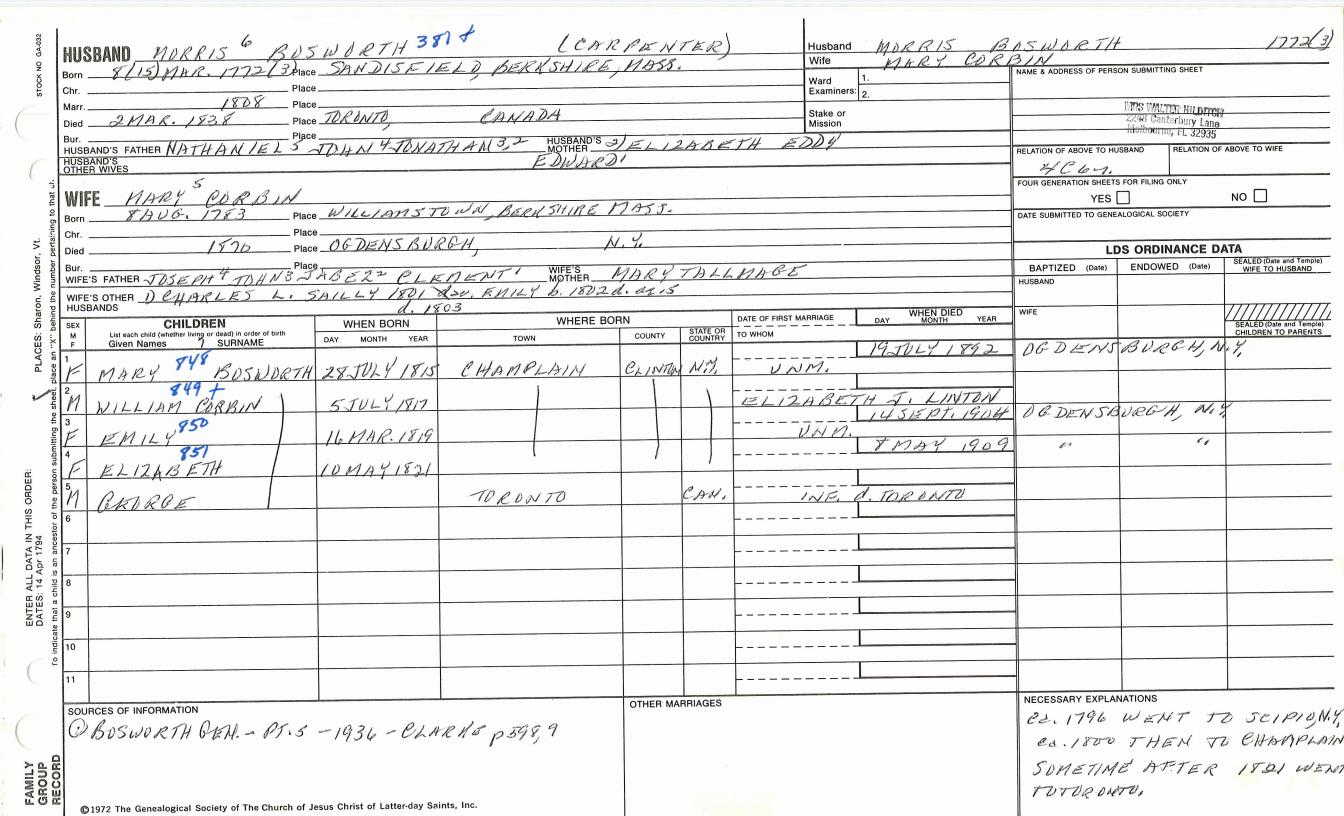 STOCK NO. GA-032
PLACES: Sharon, Windsor, Vt.
ENTER ALL DATA IN THIS ORDER:
DATES: 14 Apr 1794
To indicate that a child is an ancestor of the person submitting the sheet, place an "X" behind the number pertaining to that
FAMILY GROUP RECORD
HUSBAND MORRIS 6 BOSWORTH 387 + (CARPENTER)
Born 8(15) MAR. 1772(3) Place SANDISFIELD, BERKSHIRE, MASS.
Chr. Place
Marr. 1808 Place
Died 2 MAR. 1838 Place TORONTO, CANADA
Bur. Place
HUSBAND'S FATHER NATHANIEL 5 JOHN 4 JONATHAN 3,2 HUSBAND'S MOTHER 2) ELIZABETH EDDY
HUSBAND'S OTHER WIVES EDWARD 1
WIFE MARY 5 CORBIN
Born 8 AUG. 1783 Place WILLIAMSTOWN, BERKSHIRE MASS.
Chr. Place
Died 1870 Place OGDENSBURGH, N.Y.
Bur. Place
WIFE'S FATHER JOSEPH 4 JOHN 3 JABEZ 2 CLEMENT 1 WIFE'S MOTHER MARY TALLMAGE
WIFE'S OTHER HUSBANDS 1) CHARLES L. SAILLY 1801 EMILY b. 1802 d. ag. 5
d. 1803
Husband MORRIS BOSWORTH 1772(3)
Wife MARY CORBIN
Ward Examiners: 1.
2.
Stake or Mission
NAME & ADDRESS OF PERSON SUBMITTING SHEET
MRS WALTER HILDITCH
Canterbury Lane
Melbourne, FL 32935
RELATION OF ABOVE TO HUSBAND RELATION OF ABOVE TO WIFE
4C 6r.
FOUR GENERATION SHEETS FOR FILING ONLY
YES NO
DATE SUBMITTED TO GENEALOGICAL SOCIETY
LDS ORDINANCE DATA
BAPTIZED (Date) ENDOWED (Date) SEALED (Date and Temple) WIFE TO HUSBAND
HUSBAND
WIFE
SEALED (Date and Temple) CHILDREN TO PARENTS
SEX M F CHILDREN List each child (whether living or dead) in order of birth Given Names 7 SURNAME
WHEN BORN DAY MONTH YEAR
WHERE BORN TOWN COUNTY STATE OR COUNTRY
DATE OF FIRST MARRIAGE TO WHOM
WHEN DIED DAY MONTH YEAR
1 F MARY 848 BOSWORTH 28 JULY 1815 CHAMPLAIN CLINTON N.Y. UNM. 19 JULY 1892 OGDENSBURGH, N.Y.
2 M WILLIAM CORBIN 849 + 5 JULY 1817 ELIZABETH J. LINTON
3 F EMILY 850 16 MAR. 1819 UNM. 14 SEPT. 1904 OGDENSBURGH, N.Y.
4 F ELIZABETH 851 10 MAY 1821 8 MAY 1909 " "
5 M GEORGE TORONTO CAN. INF. d. TORONTO
6
7
8
9
10
11
SOURCES OF INFORMATION
① BOSWORTH GEN. - PT. 5 - 1936 - CLARKE p 598,9
OTHER MARRIAGES
NECESSARY EXPLANATIONS
ca. 1796 WENT TO SCIPIO, N.Y.
ca. 1800 THEN TO CHAMPLAIN
SOMETIME AFTER 1821 WENT
TO TORONTO.
©1972 The Genealogical Society of The Church of Jesus Christ of Latter-day Saints, Inc.